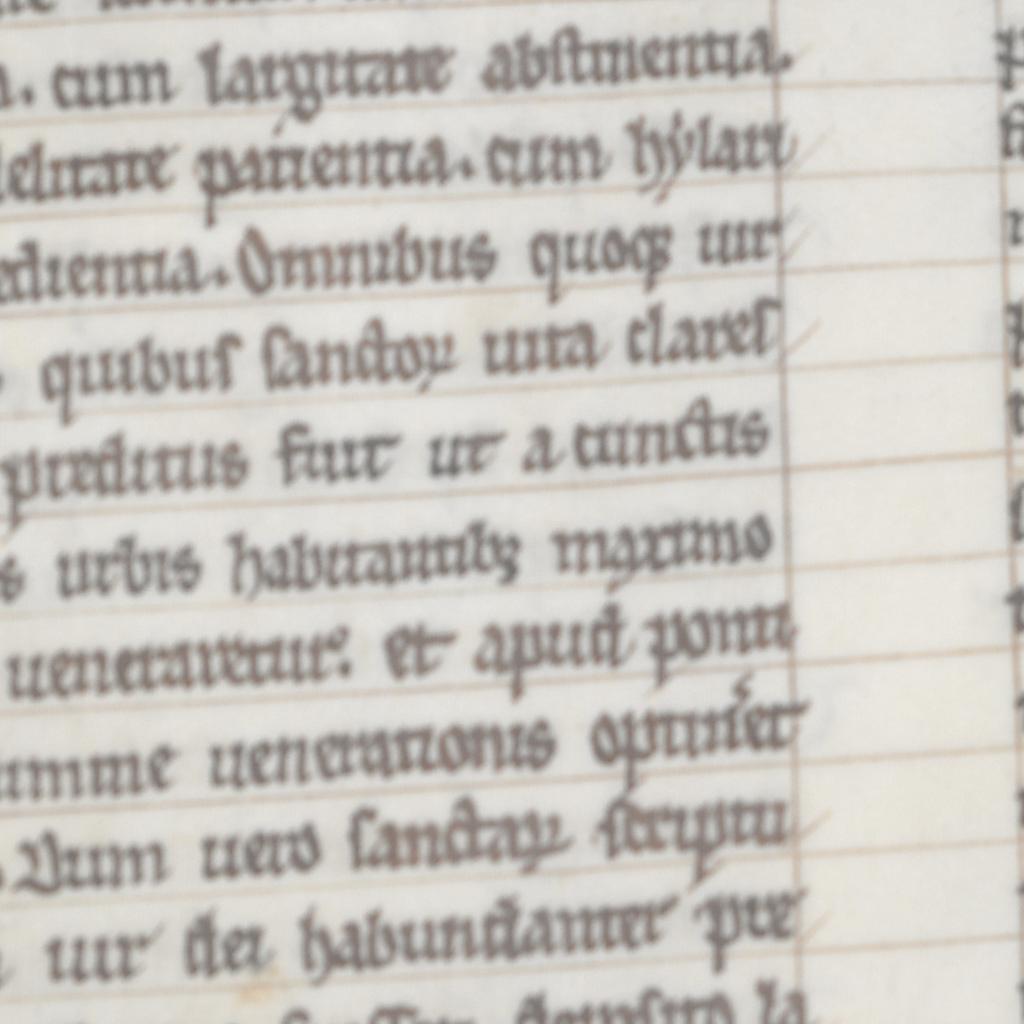 cum largitate abstinentia.
patientia. cum hylari
Omnibus quoqꝫ uir
quibus sanctoꝝ uita clares
preditus fuit ut a cunctis
urbis habitantibꝫ maximo
ueneraretur. et apud ponti
uenerationis
Dum uero sanctaꝝ scriptu
uir dei habundanter pre